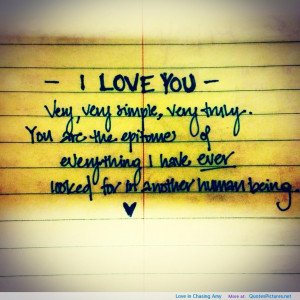 - I LOVE YOU -
Very, very simple, very truly.
You are the epitome of
everything I have ever
looked for in another human being
Love in Chasing Amy More at: QuotesPictures.net